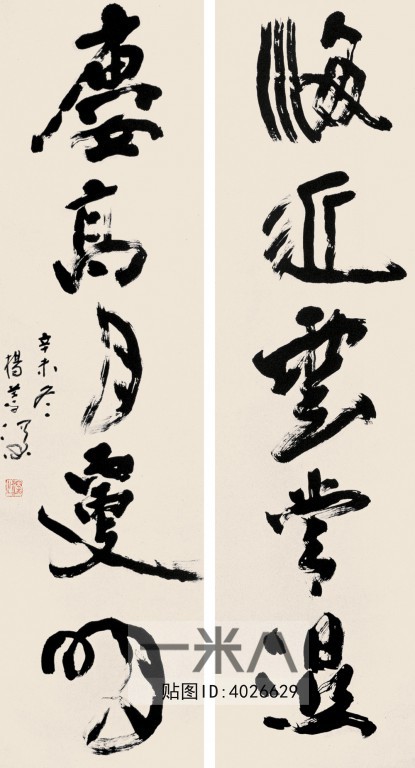 海近雲常湿
婁高月更明
辛未冬
楊善深
一米八
贴图ID:4026629